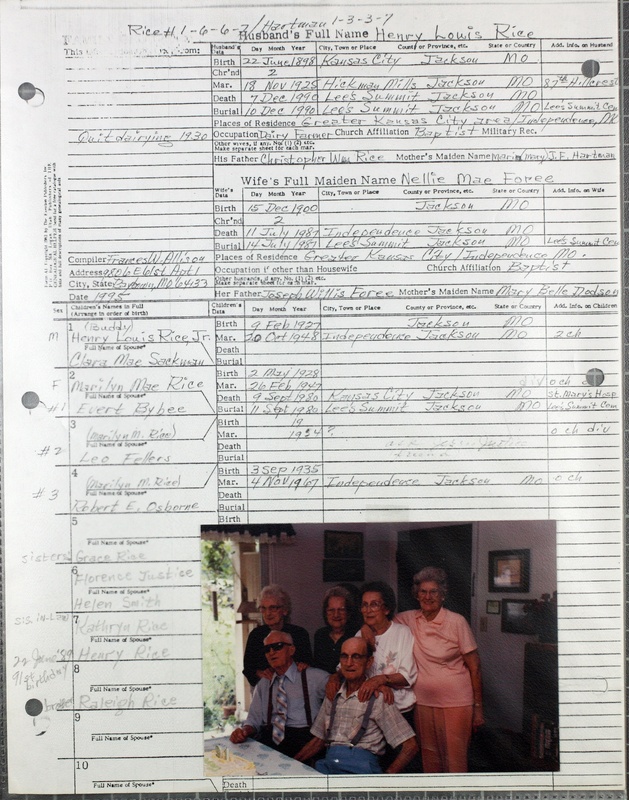 Rice #1-6-6-7/Hartman 1-3-3-7
Husband's Full Name Henry Louis Rice
Husband's Data Day Month Year City, Town or Place County or Province, etc. State or Country Add. Info. on Husband
Birth 22 June 1898 Kansas City Jackson MO
Chr'nd 2
Mar. 18 Nov 1925 Hickman Mills Jackson MO 87th Hillcrest
Death 7 Dec 1990 Lee's Summit Jackson MO
Burial 10 Dec 1990 Lee's Summit Jackson MO Lee's Summit Cem
Places of Residence Greater Kansas City area/Independence, MO
Quit dairying 1930 Occupation Dairy Farmer Church Affiliation Baptist Military Rec.
Other wives, if any, No. (1) (2) etc.
Make separate sheet for each mar.
His Father Christopher Wm Rice Mother's Maiden Name Maria(Mary) J.F. Hartman
Wife's Full Maiden Name Nellie Mae Foree
Wife's Data Day Month Year City, Town or Place County or Province, etc. State or Country Add. Info. on Wife
Birth 15 Dec 1900 Jackson MO
Chr'nd 2
Death 11 July 1987 Independence Jackson MO
Burial 14 July 1987 Lee's Summit Jackson MO Lee's Summit Cem
Compiler Frances W. Allison Places of Residence Greater Kansas City/Independence MO.
Address 9806 E 61st Apt 1 Occupation if other than Housewife Church Affiliation Baptist
City, State Raytown, MO 64133 Other husbands, if any, No. (1) (2) etc.
Make separate sheet for each mar.
Date 1995 Her Father Joseph Willis Foree Mother's Maiden Name Mary Belle Dodson
Sex Children's Names in Full
(Arrange in order of birth) Children's Data Day Month Year City, Town or Place County or Province, etc. State or Country Add. Info. on Children
1 (Buddy) Birth 9 Feb 1927 Jackson MO
M Henry Louis Rice Jr. Mar. 20 Oct 1948 Independence Jackson MO 2ch
Full Name of Spouse* Death
Clara Mae Sackman Burial
2 Birth 2 May 1928
F Marilyn Mae Rice Mar. 26 Feb 1947 div och
Full Name of Spouse* Death 9 Sept 1980 Kansas City Jackson MO St. Mary's Hosp
#1 Evert Bybee Burial 11 Sept 1980 Lee's Summit Jackson MO Lee's Summit Cem
3 Birth 19
(Marilyn M. Rice) Mar. 1954? och div
#2 Full Name of Spouse*
Leo Fellers
4 Birth 3 Sep 1935
(Marilyn M. Rice) Mar. 4 Nov 1967 Independence Jackson MO och
#3 Full Name of Spouse* Death
Robert E. Osborne Burial
5 Birth
Full Name of Spouse*
sisters Grace Rice
6 Florence Justice
Full Name of Spouse*
Helen Smith
sis. in-law 7 Kathryn Rice
Full Name of Spouse*
22 June '89 Henry Rice
91st birthday 8
Full Name of Spouse*
Raleigh Rice
9
Full Name of Spouse*
10
Full Name of Spouse* Death